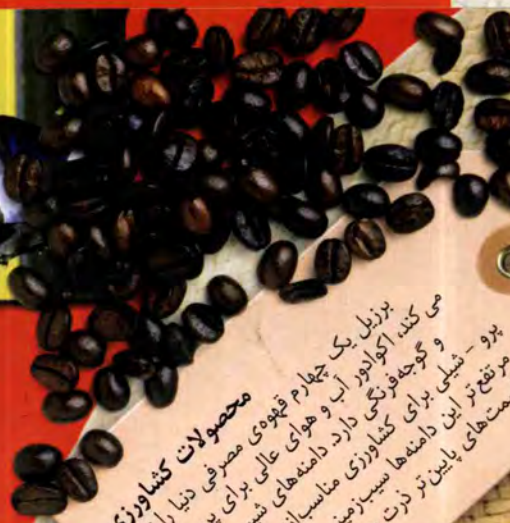 محصولات کشاورزی
برزیل یک چهارم قهوه‌ی مصرفی دنیا را
می کند. اکوادور آب و هوای عالی برای
و گوجه‌فرنگی دارد. دامنه‌های
پرو - شیلی برای کشاورزی مناسب‌
مرتفع تر این دامنه‌ها سیب‌زمینی
پایین تر ذرت